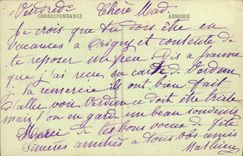 CORRESPONDANCE ADRESSE
Vendredi Chère Mad.
Je crois que tu dois être en
vacances à Origny et contente de
te reposer un peu. Dis à maman
que j'ai reçu sa carte de Verdun
je la remercie ils ont bien fait
d'aller voir Verdun ce doit être triste
mais l'on en garde un beau souvenir
Merci de les bons voeux de fête
Sincères amitiés à tous vos amies